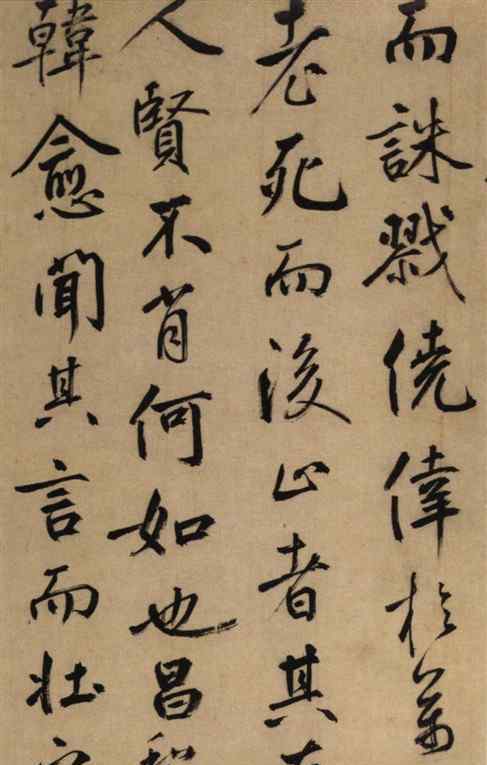 而誅戮僥倖於萬
老死而後止者其
人賢不肖何如也昌
韓愈聞其言而壯